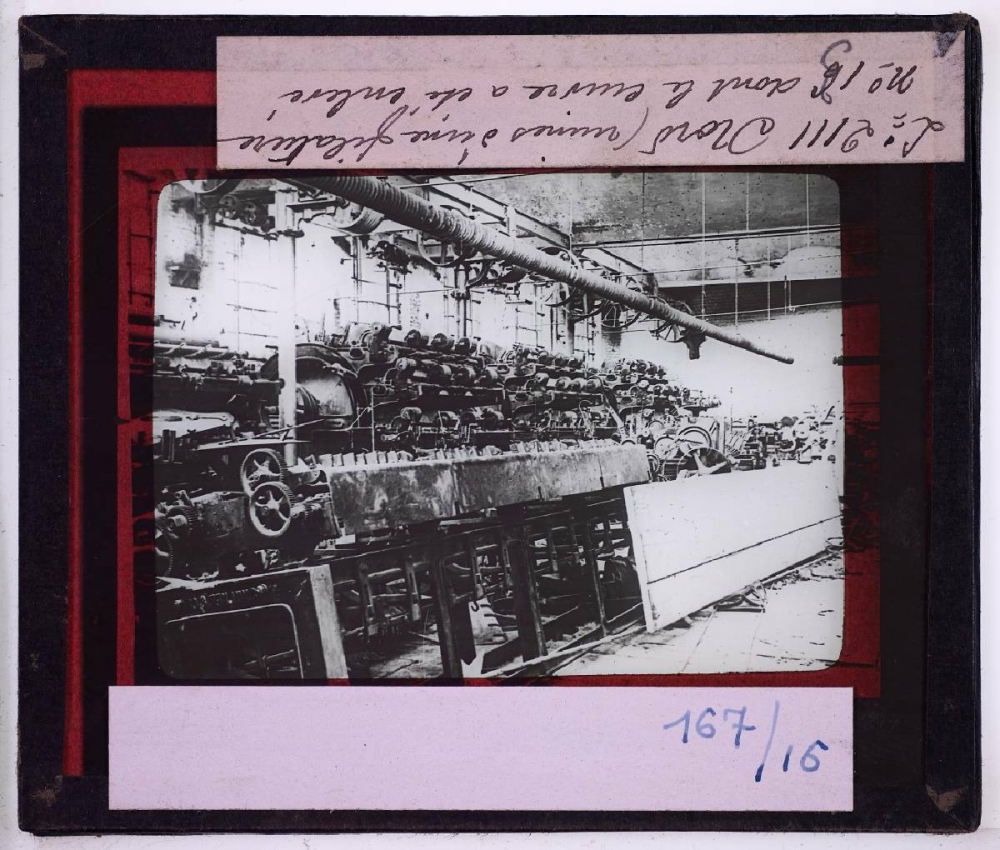 L: 2111 Nord (ruines d'une filature
dont le cuivre a été enlevé
167/16